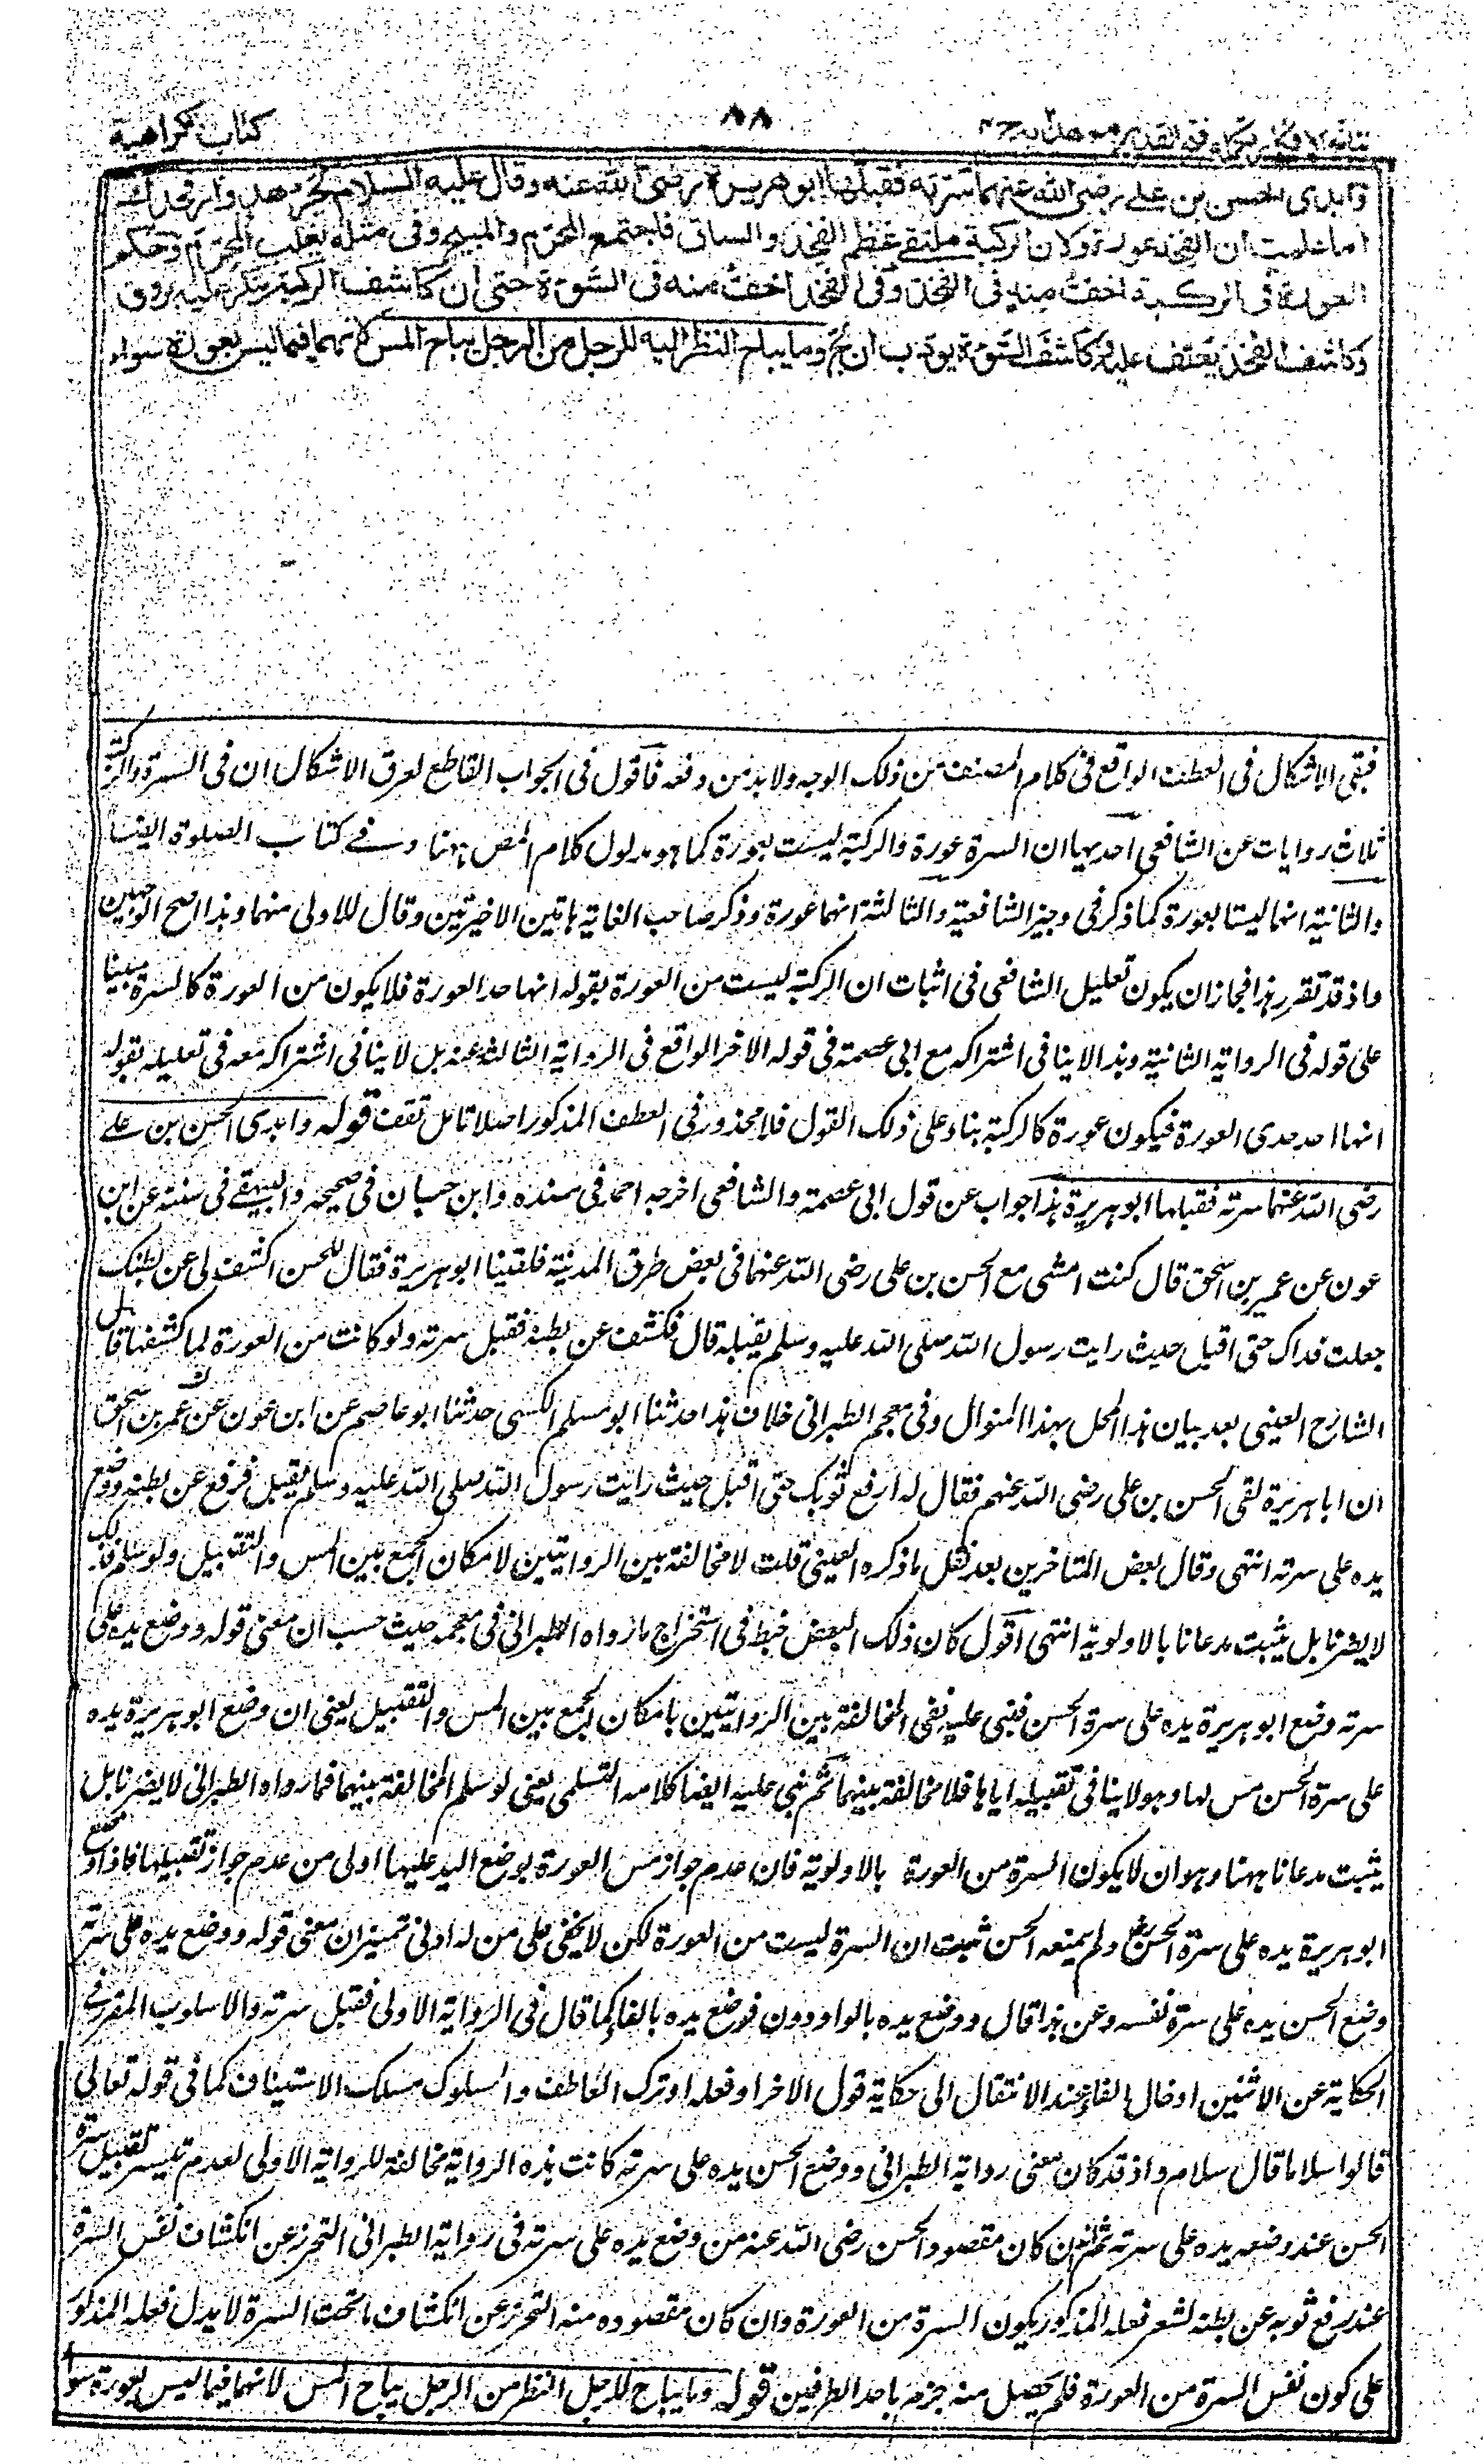 نتائج الافكار تكملة فتح القدير مع هداية ج ٤
٨٨
كتاب كراهية
وابدى الحسن بن علي رضى الله عنهما سرته فقبلها ابو هريرة رضى الله عنه وقال عليه السلام لجرهد وار فخذك
اما علمت ان الفخذ عورة ولان الركبة ملتقى عظم الفخذ والساق فاجتمع المحرم والمبيح وفى مثله يغلب المحرم وحكم
العورة فى الركبة اخف منه فى الفخذ وفى الفخذ اخف منه فى السوءة حتى ان كاشف الركبة ينكر عليه برفق
وكاشف الفخذ يعنف عليه وكاشف السوءة يودب ان لج وما يباح النظر اليه للرجل من الرجل يباح المس لانهما فيما ليس بعورة سواء
فبقى الاشكال فى العطف الواقع فى كلام المصنف من ذلك الوجه ولا بد من دفعه فاقول فى الجواب القاطع لعرق الاشكال ان فى السرة والركبة
ثلاث روايات عن الشافعى احديها ان السرة عورة والركبة ليست بعورة كما هو مدلول كلام المص ههنا وفے كتاب الصلوة ايضا
والثانية انهما ليستا بعورة كما ذكر فى وجيز الشافعية والثالثة انهما عورة وذكر صاحب الغاية هاتين الاخيرتين وقال للاولى منهما وهذا اصح الوجهين
واذ قد تقرر هذا فجاز ان يكون تعليل الشافعى فى اثبات ان الركبة ليست من العورة بقوله انها حد العورة فلا يكون من العورة كالسرة مبينا
على قوله فى الرواية الثانية وهذا لا ينافى اشتراكه مع ابى عصمة فى قوله الاخر الواقع فى الرواية الثالثة عنه بل لا ينافى اشتراكه معه فى تعليله بقوله
انها احد حدى العورة فيكون عورة كالركبة بناء على ذلك القول فلا محذور فى العطف المذكور اصلا تامل تقف قوله وابدى الحسن بن علے
رضى الله عنهما سرته فقبلها ابو هريرة هذا جواب عن قول ابى عصمة والشافعى اخرجه احمد فى مسنده وابن حبان فى صحيحه والبيهقے فى سننه عن ابن
عون عن عمير بن اسحق قال كنت امشى مع الحسن بن على رضى الله عنهما فى بعض طرق المدينة فلقينا ابو هريرة فقال للحسن اكشف لى عن بطنك
جعلت فداك حتى اقبل حيث رايت رسول الله صلى الله عليه وسلم يقبله قال فكشف عن بطنه فقبل سرته ولو كانت من العورة لما كشفها قال
الشارح العينى بعد بيان هذا المحل بهذا المنوال وفى معجم الطبرانى خلاف هذا حدثنا ابو مسلم الكشى حدثنا ابو عاصم عن ابن عون عن عمير بن اسحق
ان ابا هريرة لقى الحسن بن على رضى الله عنهم فقال له ارفع ثوبك حتى اقبل حيث رايت رسول الله صلى الله عليه وسلم يقبل فرفع عن بطنه ووضع
يده على سرته انتهى وقال بعض المتاخرين بعد نقل ما ذكره العينى قلت لا مخالفة بين الروايتين لامكان الجمع بين المس والتقبيل ولو سلم فذلك
لا يضرنا بل يثبت مدعانا بالاولوية انتهى اقول كان ذلك البعض خبط فى استخراج ما رواه الطبرانى فى معجمه حيث حسب ان معنى قوله ووضع يده على
سرته وضع ابو هريرة يده على سرة الحسن فبنى عليه نفى المخالفة بين الروايتين بامكان الجمع بين المس والتقبيل يعنى ان وضع ابو هريرة يده
على سرة الحسن مس لها وهو لا ينافى تقبيله اياها فلا مخالفة بينهما ثم بنى عليه ايضا كلامه التسلمى يعنى لو سلم المخالفة بينهما فما رواه الطبرانى لا يضرنا بل
يثبت مدعانا ههنا وهو ان لا يكون السرة من العورة بالاولوية فان عدم جواز مس العورة بوضع اليد عليها اولى من عدم جواز تقبيلها فاذا وضع
ابو هريرة يده على سرة الحسن ولم يمنعه الحسن ثبت ان السرة ليست من العورة لكن لا يخفى على من له ادنى تمييز ان معنى قوله ووضع يده على سرته
وضع الحسن يده على سرة نفسه وعن هذا قال ووضع يده بالواو دون فوضع يده بالفاء كما قال فى الرواية الاولى فقبل سرته والاسلوب المقرر فے
الحكاية عن الاثنين ادخال الفاء عند الانتقال الى حكاية قول الاخر او فعله او ترك العاطف والسلوك مسلك الاستيناف كما فى قوله تعالى
قالوا سلاما قال سلام واذ قد كان معنى رواية الطبرانى ووضع الحسن يده على سرته كانت هذه الرواية مخالفة للرواية الاولى لعدم تيسر تقبيل سرة
الحسن عند وضعه يده على سرته ثم ان كان مقصود الحسن رضى الله عنه من وضع يده على سرته فى رواية الطبرانى التحرز عن انكشاف نفس السرة
عند رفع ثوبه عن بطنه لشعر فعله المذكور بكون السرة من العورة وان كان مقصوده منه التحرز عن انكشاف ما تحت السرة لا يدل فعله المذكور
على كون نفس السرة من العورة فلم يحصل منه جزم باحد الطرفين قوله وما يباح للرجل النظر من الرجل يباح المس لانهما فيما ليس بعورة سوا